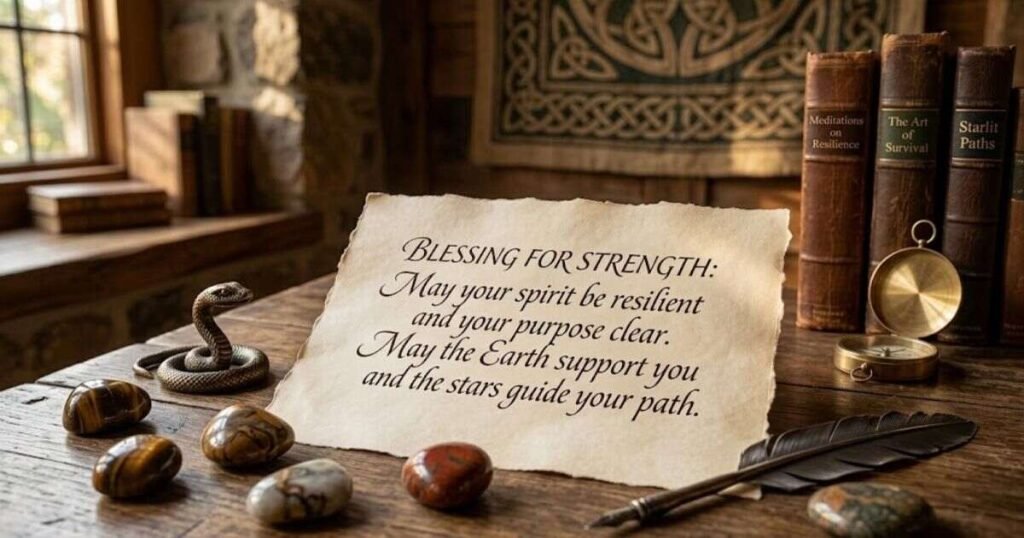 BLESSING FOR STRENGTH:
May your spirit be resilient
and your purpose clear.
May the Earth support you
and the stars guide your path.
Meditations
on
Resilience
The Art
of
Survival
Starlit
Paths